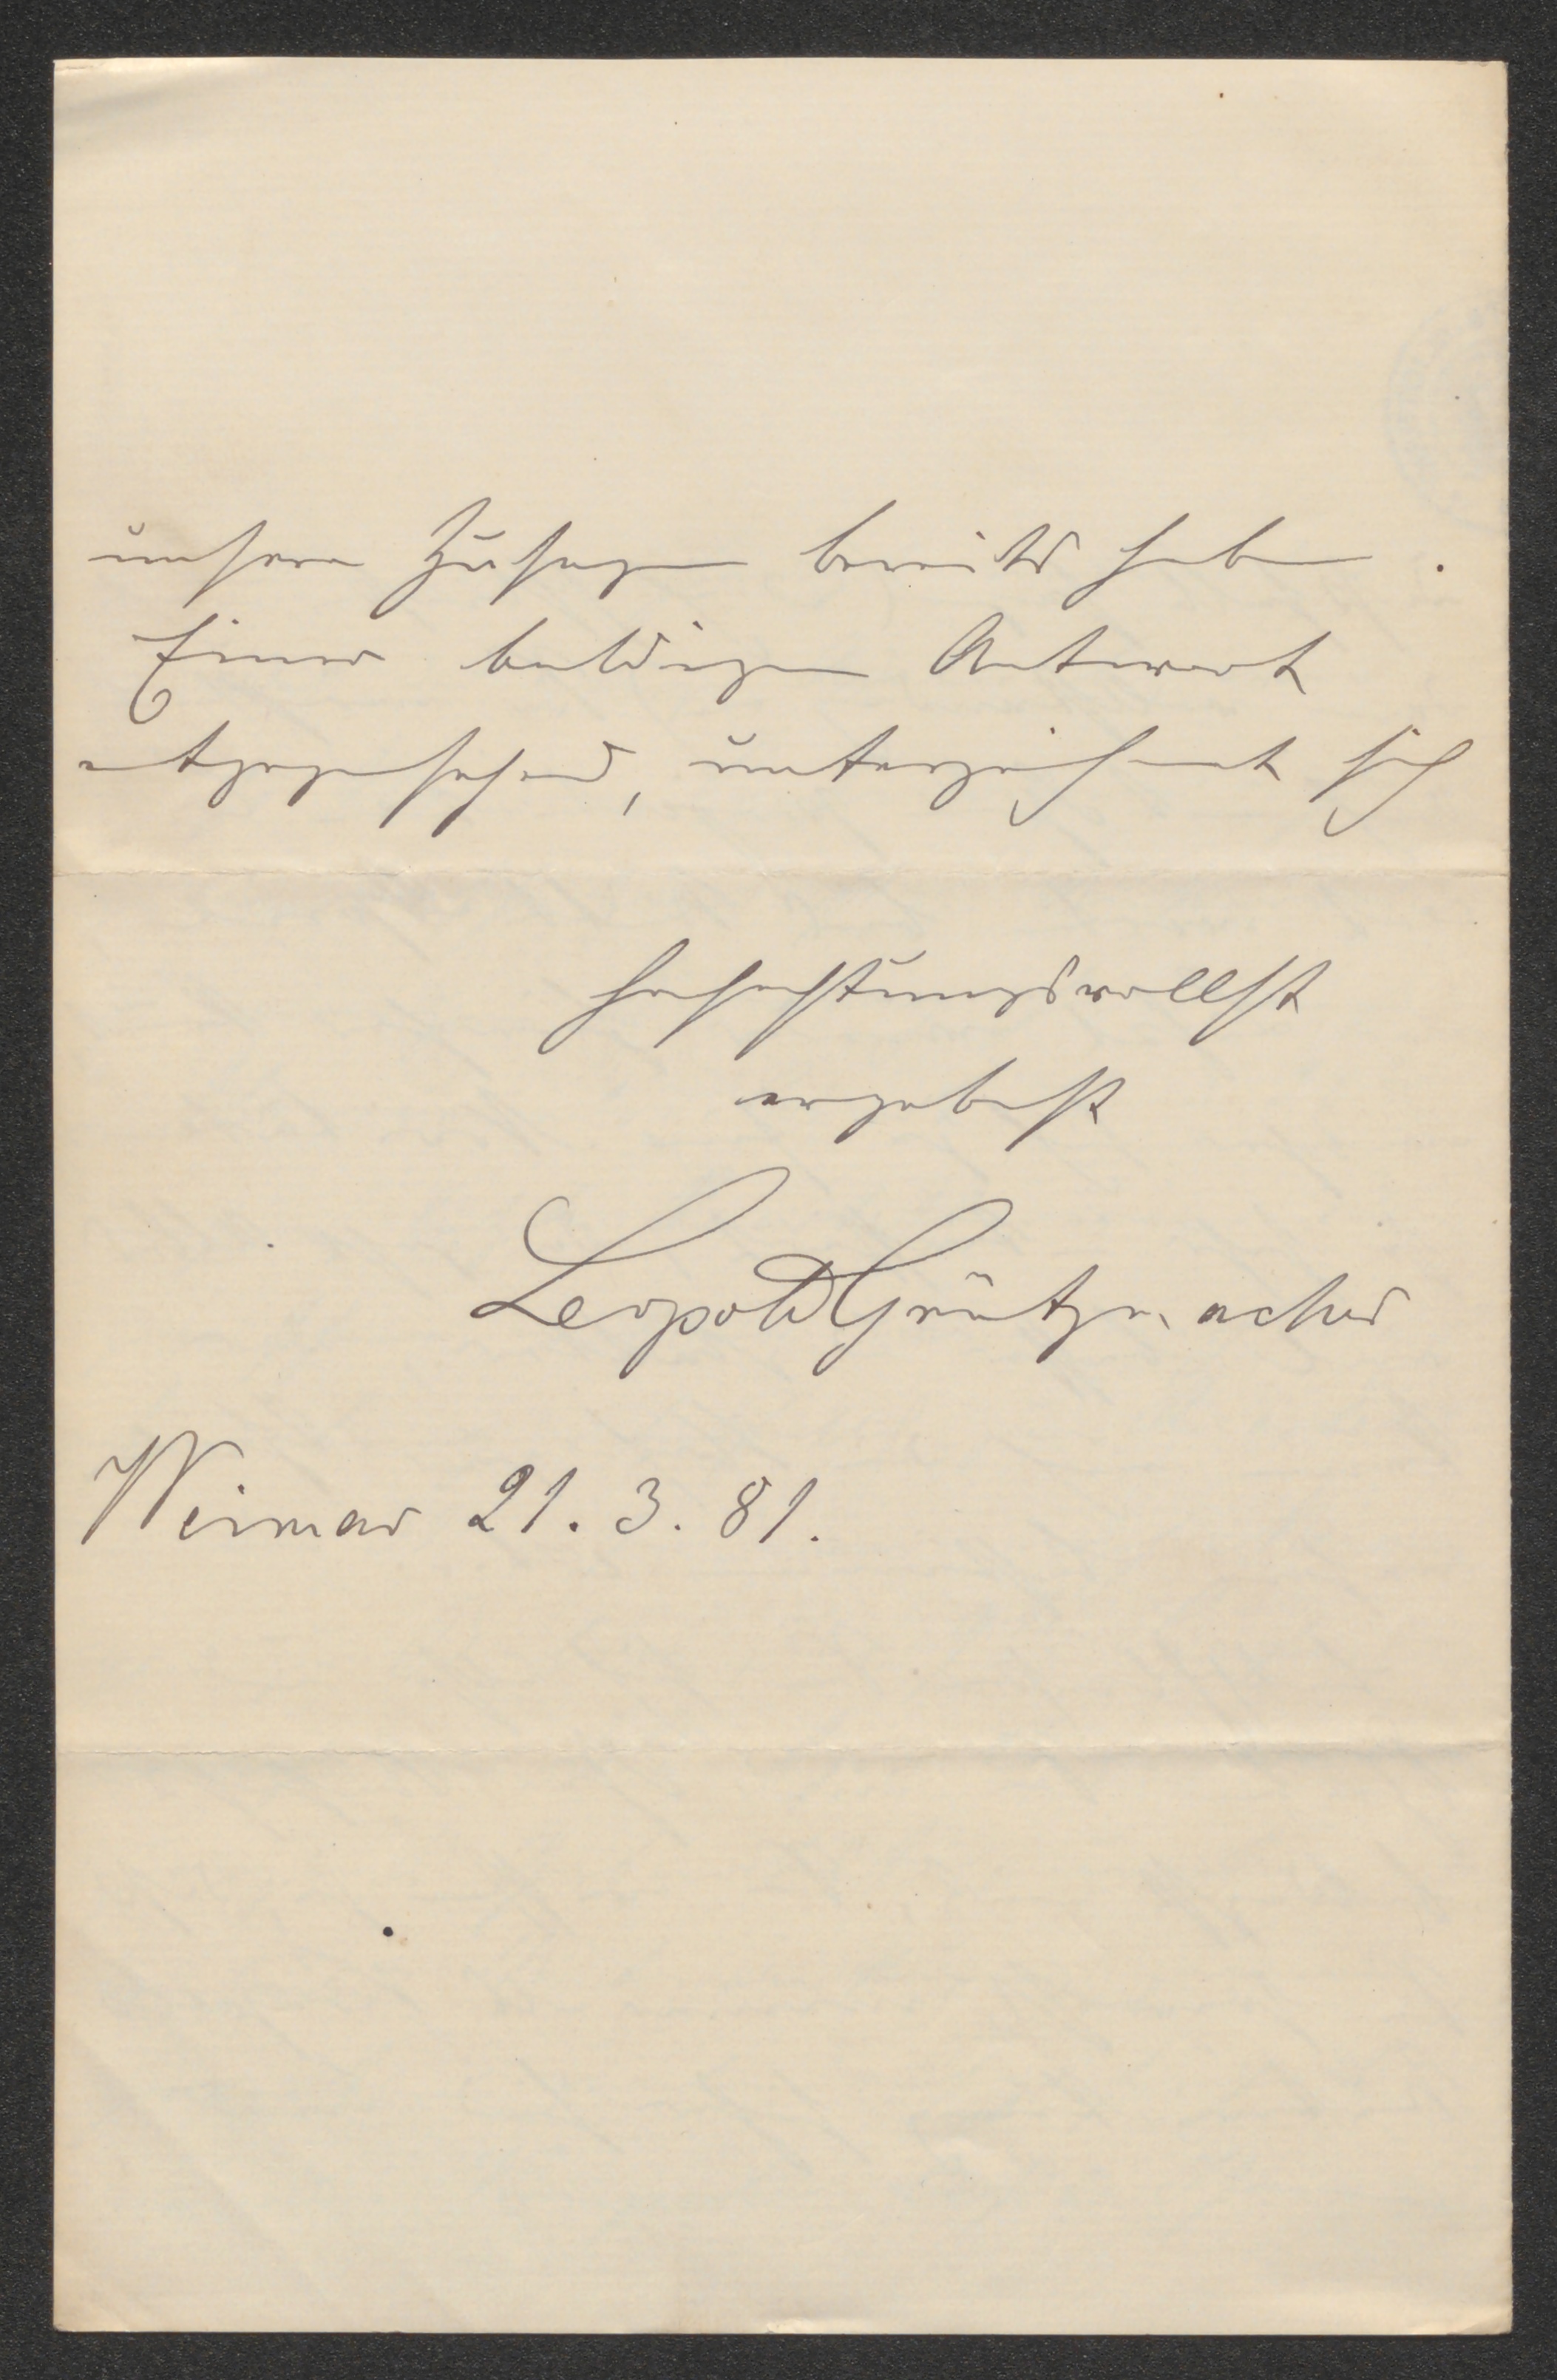 unsere Zusagen bereits haben.
Einer baldigen Antwort
entgegensehend, unterzeichnet sich
hochachtungsvollst
ergebenst
Leopold Grützmacher
Weimar 21. 3. 81.